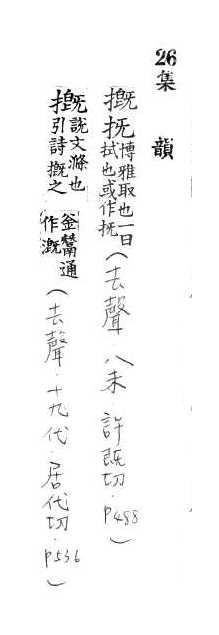 26集韻
摡抚博雅取也一曰拭也或作抚(去聲．八未．許既切．p488)
摡說文滌也引詩摡之釜鬵通作溉(去聲．十九代．居代切．p536)